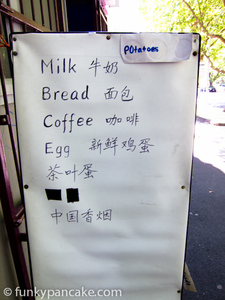 POtatoes
Milk 牛奶
Bread 面包
Coffee 咖啡
Egg 新鲜鸡蛋
茶叶蛋
中国香烟
© funkypancake.com